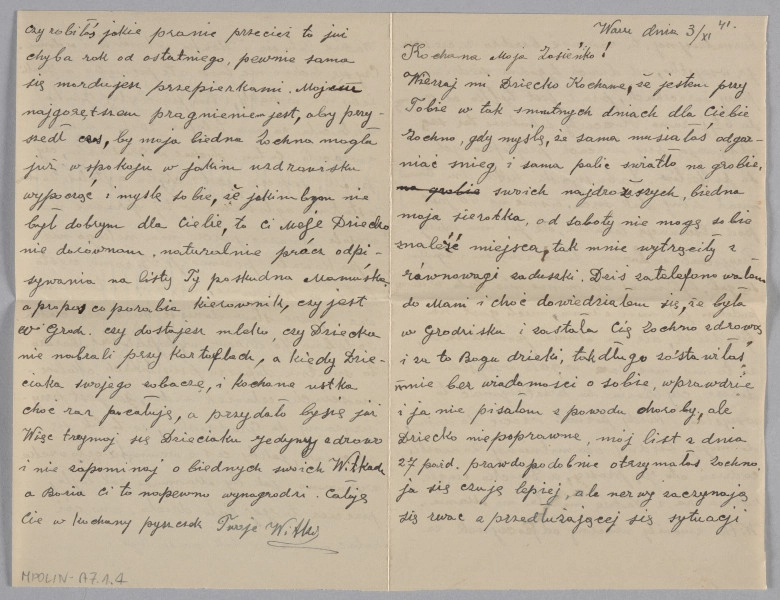 Waw dnia 3/XI 41.
Kochana Moja Zosieńko!
Wierzaj mi Dziecko Kochane, że jestem przy
Tobie w tak smutnych dniach dla Ciebie
Zochno, gdy myślę, że sama musiałaś odgar-
niać śnieg i sama palić światło na grobie,
na grobie swoich najdroższych, biedna
moja sierotka, od soboty nie mogę sobie
znaleźć miejsca, tak mnie wytrąciły z
równowagi zaduszki. Dziś zatelefonowałam
do Mani i choć dowiedziałam się, że była
w Grodzisku i zastała Cię Zochno zdrową
i za to Bogu dzięki, tak długo zostawiłaś
mnie bez wiadomości o sobie, wprawdzie
i ja nie pisałam z powodu choroby, ale
Dziecko niepoprawne, mój list z dnia
27 paźd. prawdopodobnie otrzymałaś Zochno,
ja się czuję lepiej, ale nerwy zaczynają
się rwać z przedłużającej się sytuacji
czy robiłaś jakie pranie przecież to już
chyba rok od ostatniego, pewnie sama
się mordujesz przepierkami. Mojem
najgorętszem pragnieniem jest, aby przy-
szedł czas, by moja biedna Zochna mogła
już w spokoju w jakim uzdrowisku
wypocząć i myślę sobie, że jakimbym nie
był dobrym dla Ciebie, to Ci Moje Dziecko
nie dorównam, naturalnie prócz odpi-
sywania na listy Ty paskudna Mamuśka,
a propos co porabia kierownik, czy jest
w Grodz. czy dostajesz mleko, czy Dziecka
nie nabrali przy kartoflach, a kiedy Dzie-
ciaka swojego zobaczę, i kochane ustka
choć raz pocałuję, a przydało by się już
Więc trzymaj się Dzieciaku jedyny zdrowo
i nie zapominaj o biednych swoich Witkach
a Bozia Ci to napewno wynagrodzi. Całuję
Cię w kochany pyszczek Twoje Witki
MPOLIN-A7.1.4